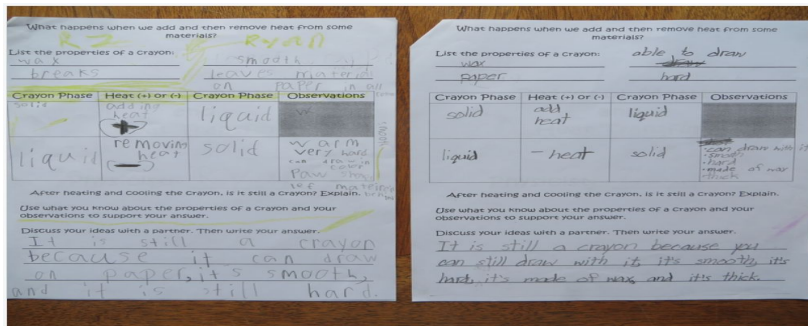 What happens when we add and then remove heat from some
materials?
R2 Ryan
List the properties of a Crayon:
wax
smooth
breaks
leaves material
on paper in all
Crayon Phase Heat (+) or (-) Crayon Phase Observations
solid
adding
heat
+
liquid
liquid
removing
heat
-
solid
warm
very hard
can draw in
color
Paw shap
After heating and Cooling the Crayon, is it still a Crayon? Explain.
Use what you know about the properties of a Crayon and your
observations to support your answer.
Discuss your ideas with a partner. Then write your answer.
It is still a crayon
because it can draw
on paper, it s smooth,
and it is still hard.
What happens when we add and then remove heat from some
materials?
List the properties of a Crayon:
able to draw
wax
paper
hard
Crayon Phase Heat (+) or (-) Crayon Phase Observations
solid
add
heat
liquid
liquid
- heat
solid
•can draw with it
•smooth
•hard
•made of wax
•thick
After heating and Cooling the Crayon, is it still a Crayon? Explain.
Use what you know about the properties of a Crayon and your
observations to support your answer.
Discuss your ideas with a partner. Then write your answer.
It is still a crayon because you
can still draw with it, it's smooth, it's
hard, it's made of wax, and it's thick.